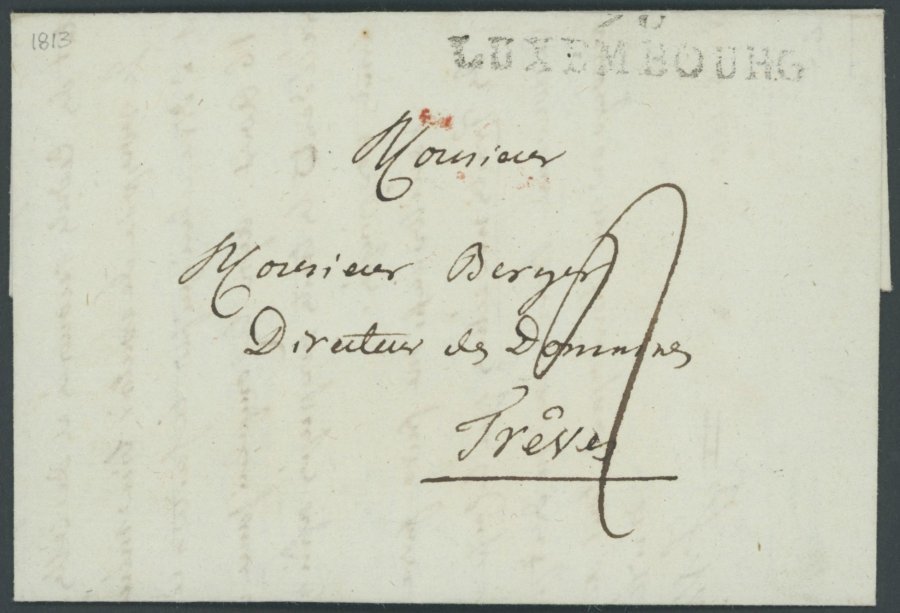 1813
LUXEMBOURG
Monsieur
Monsieur Berger
Directeur des Domaines
Trêves